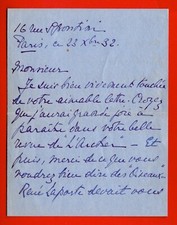 16 rue
Paris, ce 23 Xbre 32.
Monsieur
Je suis bien vivement touchée
de votre aimable lettre. Croyez
que j'aurai grande joie à
paraître dans votre belle
revue de "L'Archer" — Et
puis, merci de ce que vous
voudrez bien dire des "Oiseaux"
René Laporte devait vous